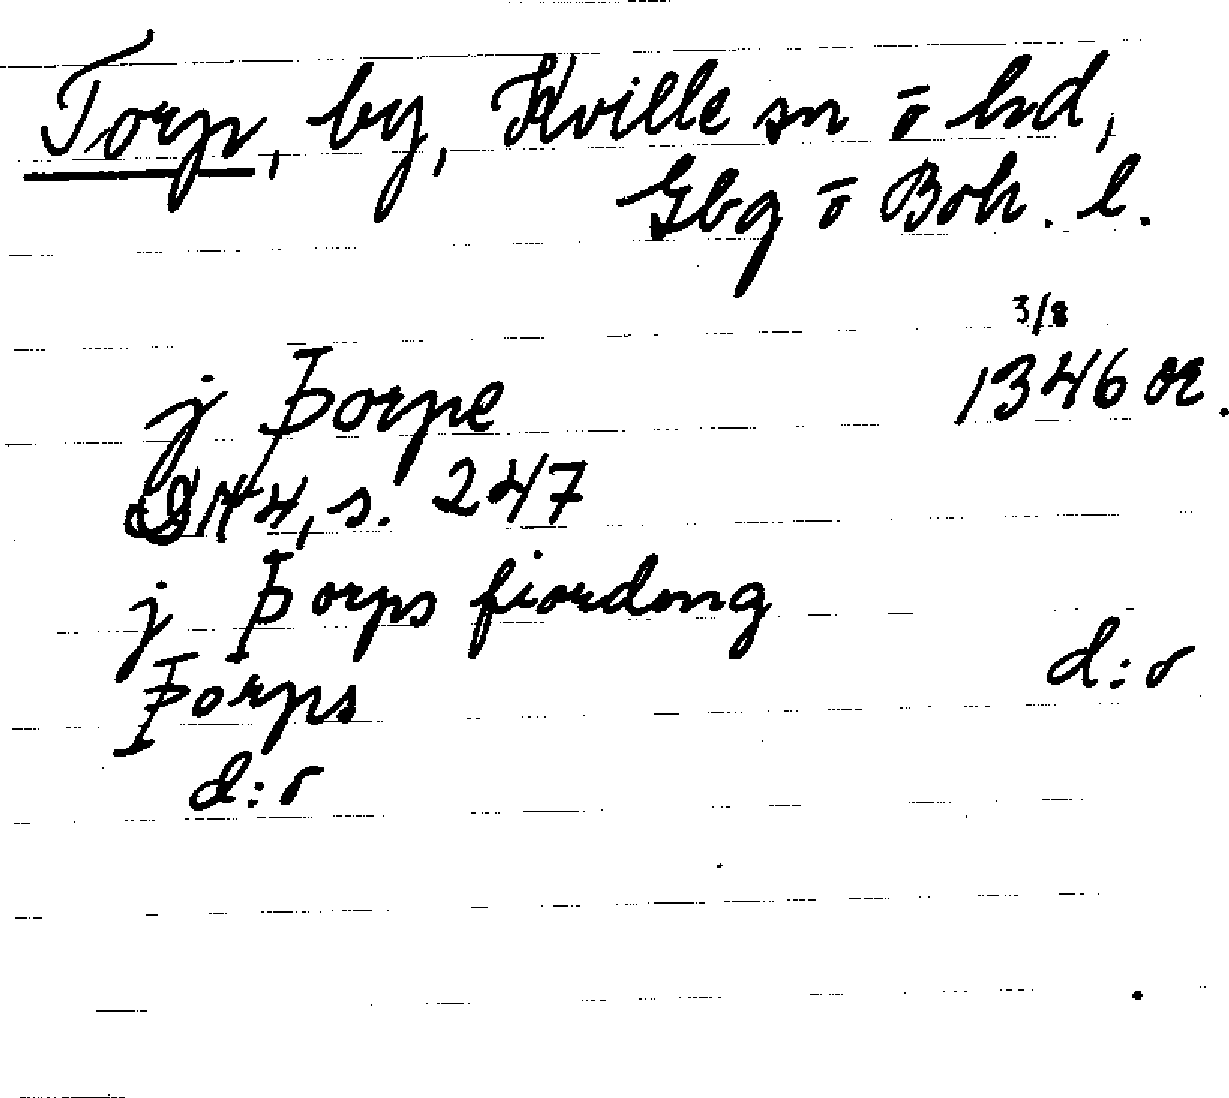 Torp, by, Kville sn o hd,
Gbg o Boh. l.
3/8
j Þorpe 1346 or.
DN 4, s. 247
j Þorps fiordong
d:o
Þorps
d:o